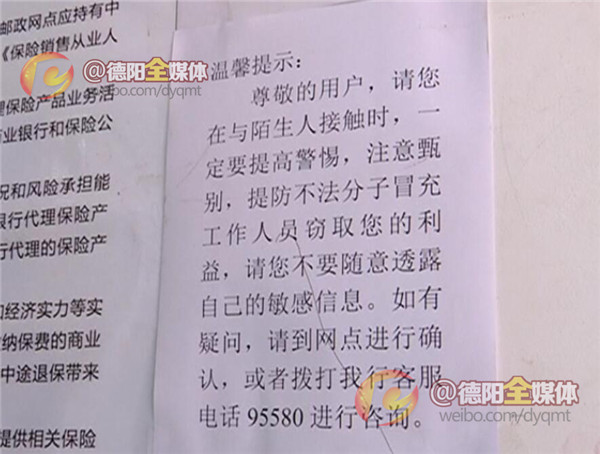 邮政网点应持有中
《保险销售从业人
理保险产品业务活
商业银行和保险公
况和风险承担能
银行代理保险产
行代理的保险产
和经济实力等实
缴纳保费的商业
中途退保带来
提供相关保险
温馨提示：
尊敬的用户，请您
在与陌生人接触时，一
定要提高警惕，注意甄
别，提防不法分子冒充
工作人员窃取您的利
益，请您不要随意透露
自己的敏感信息。如有
疑问，请到网点进行确
认，或者拨打我行客服
电话 95580 进行咨询。
@德阳全媒体
weibo.com/dyqmt
@德阳全媒体
weibo.com/dyqmt